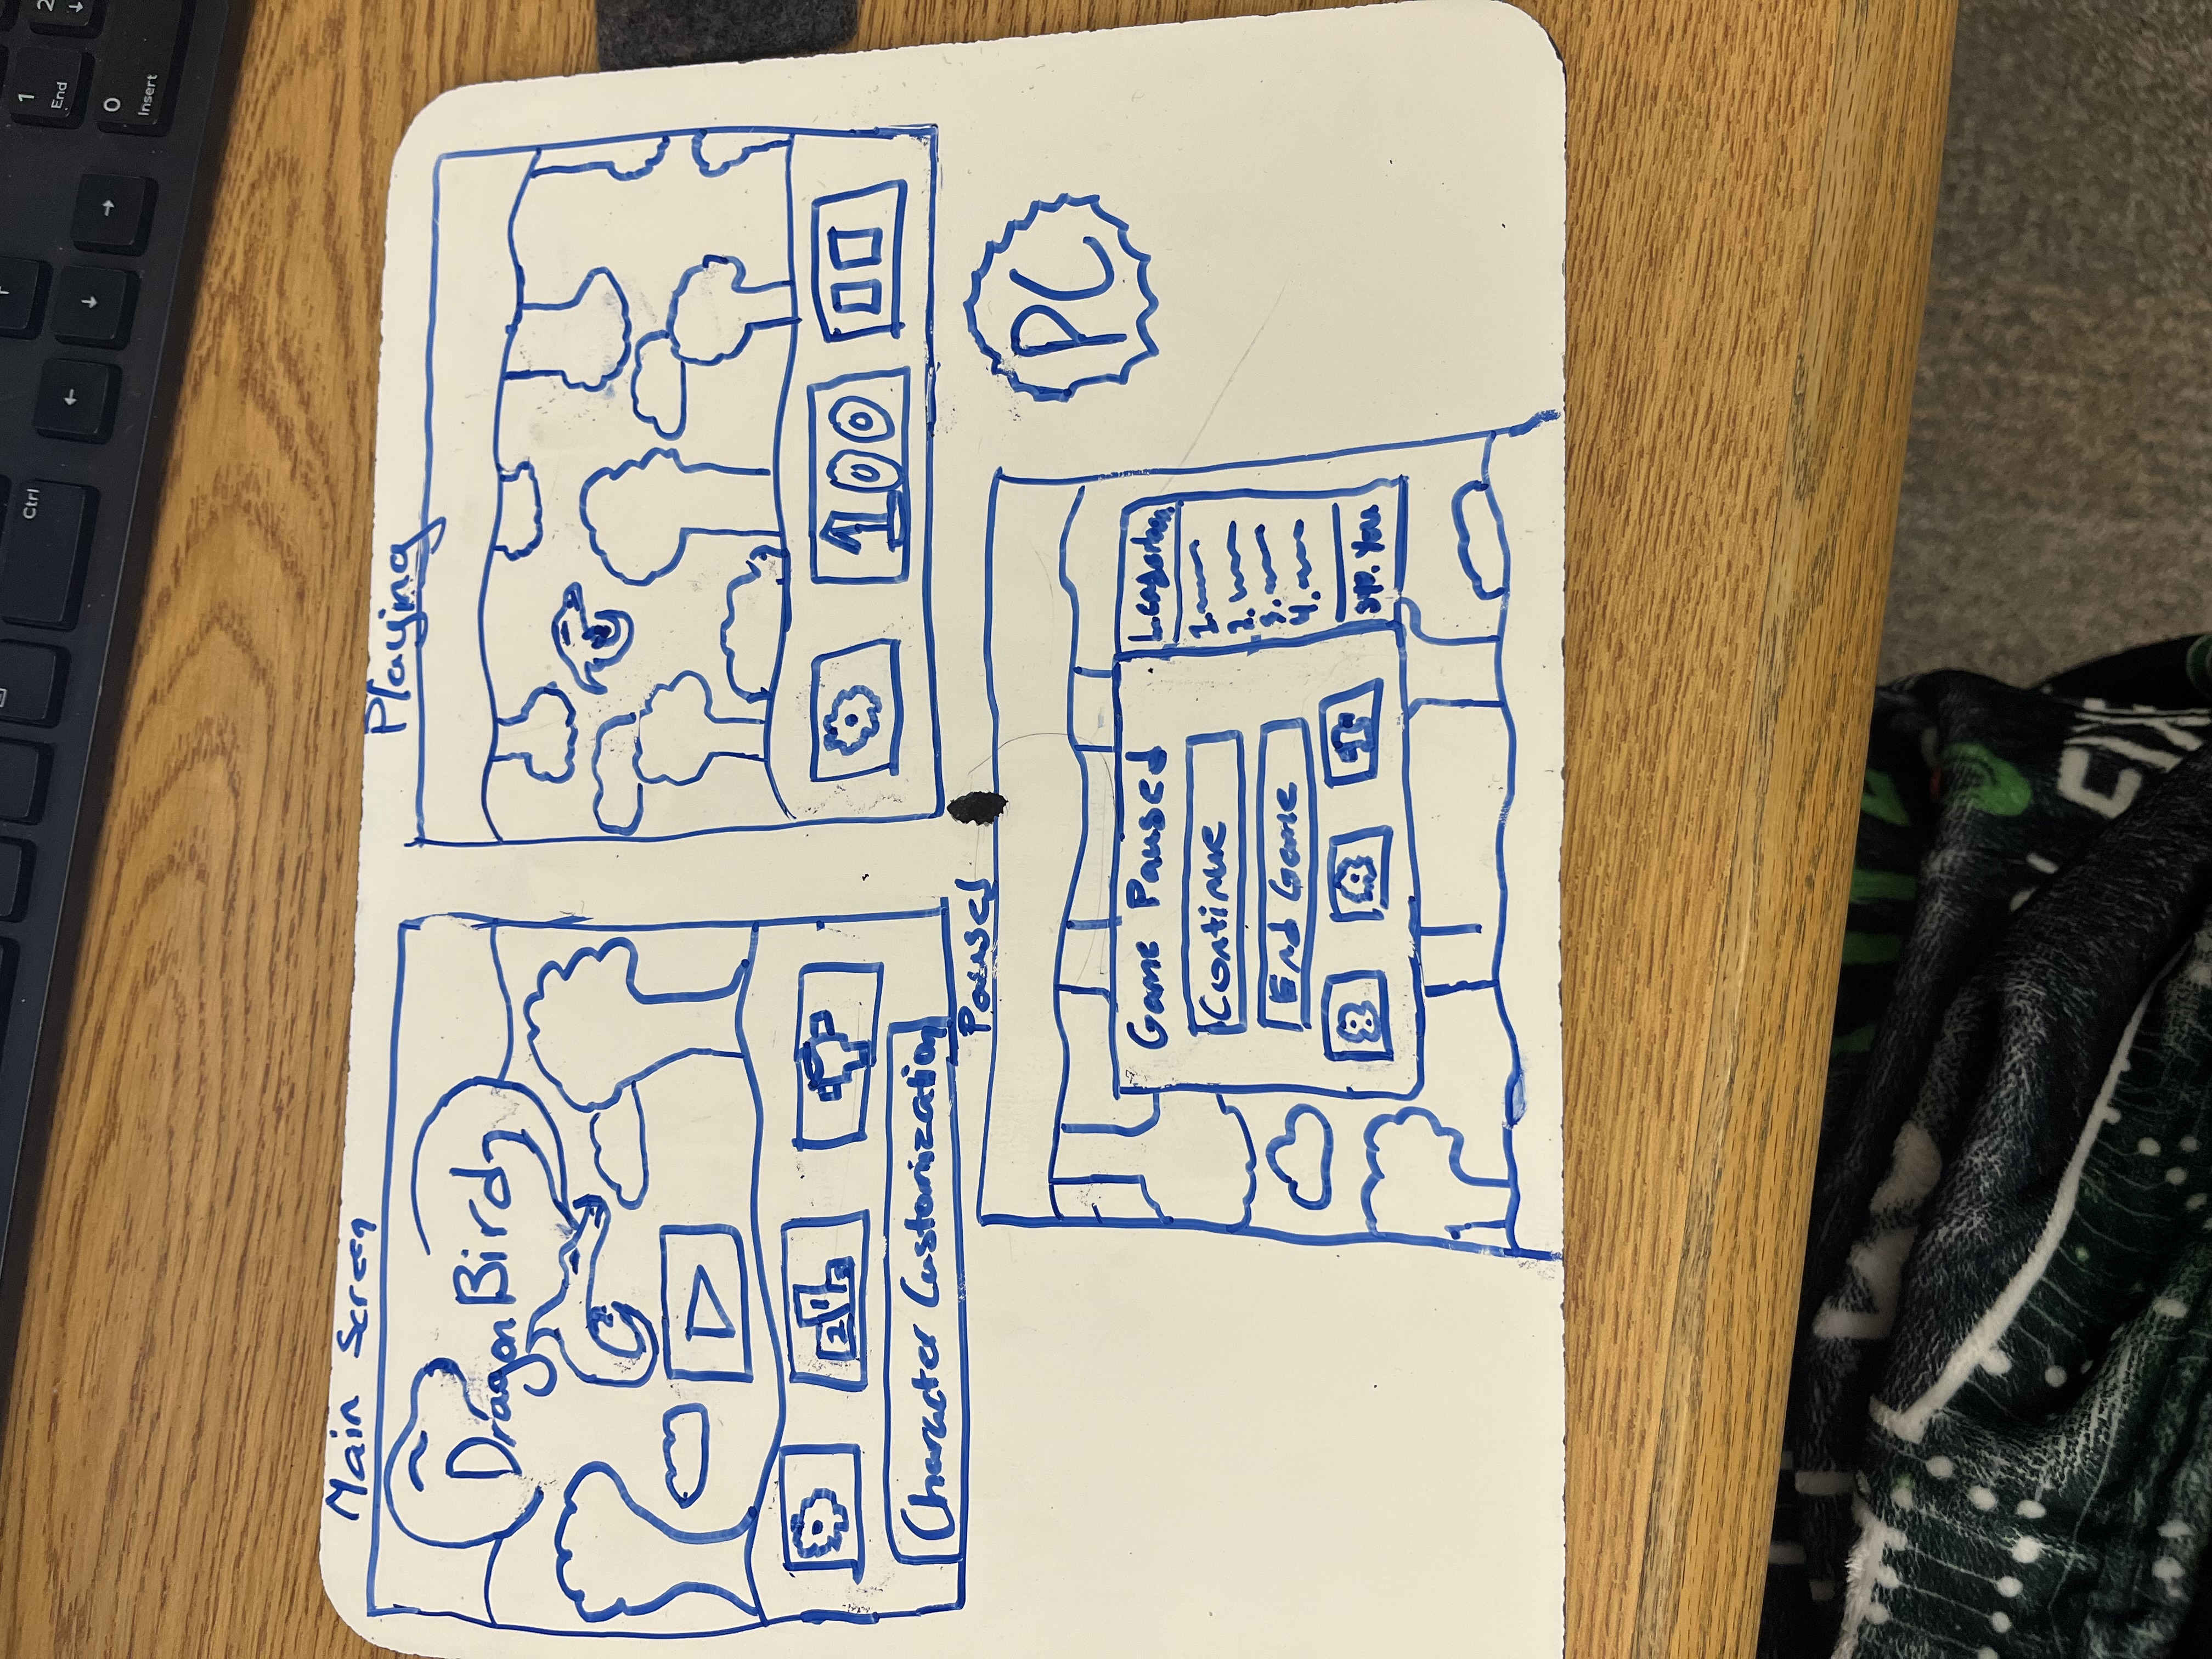 Ctrl
←
↓
→
1
End
2
↓
0
Insert
Main Screen
Dragon Bird
2 1 3
Character Customization
Playing
100
Paused
Game Paused
Continue
End Game
1.
2.
3.
4.
You
PC